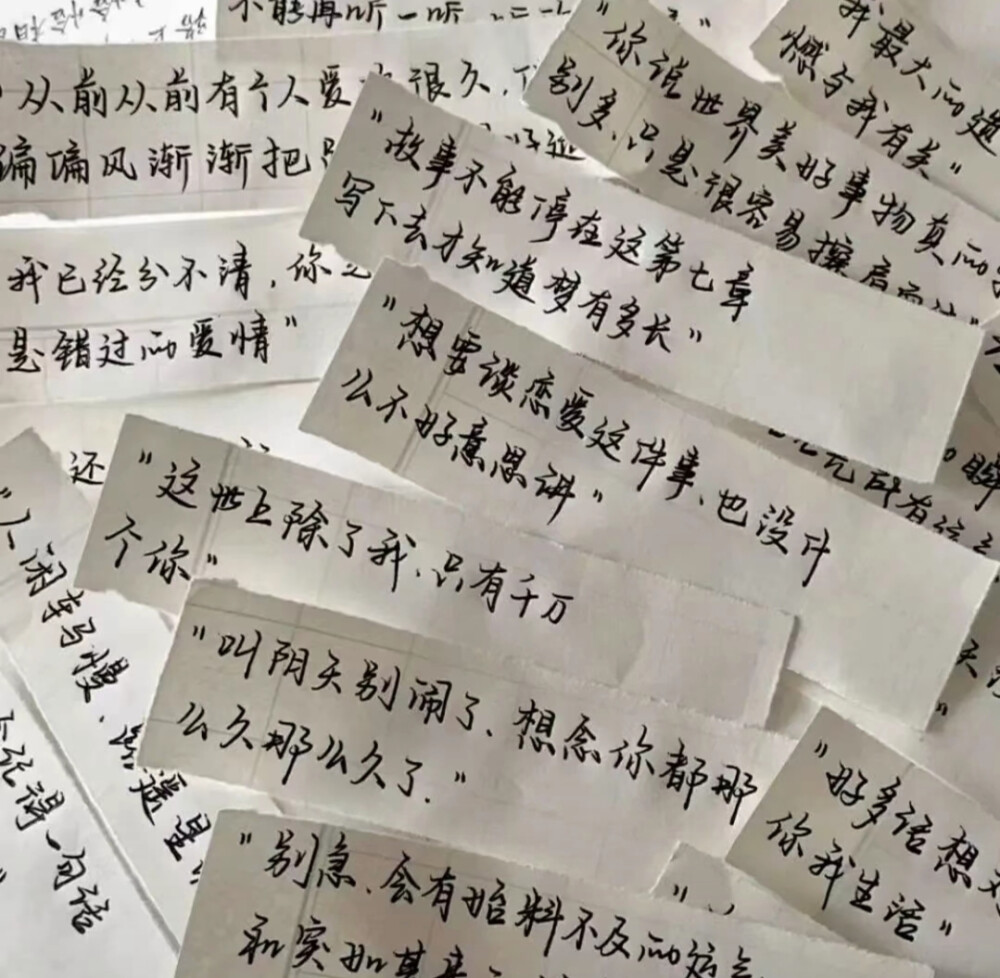 不能再听一听
从前从前有个人爱 很久,
偏偏风渐渐把
"你说世界美好事物真的
别多、只是很容易擦肩而过"
我最大的遗
憾与我有关"
"故事不能停在这第七章
写下去才知道梦有多长"
我已经分不清,你
是错过的爱情"
"想要谈恋爱这件事、也没什
么不好意思讲"
还
"这世上除了我、只有千万
个你"
"人闲车马慢、路遥星
"叫阴天别闹了、想念你都那
么久那么久了."
张得一句话
"好多话想
你我生活"
"别急、会有始料不及的运气
和突如其来